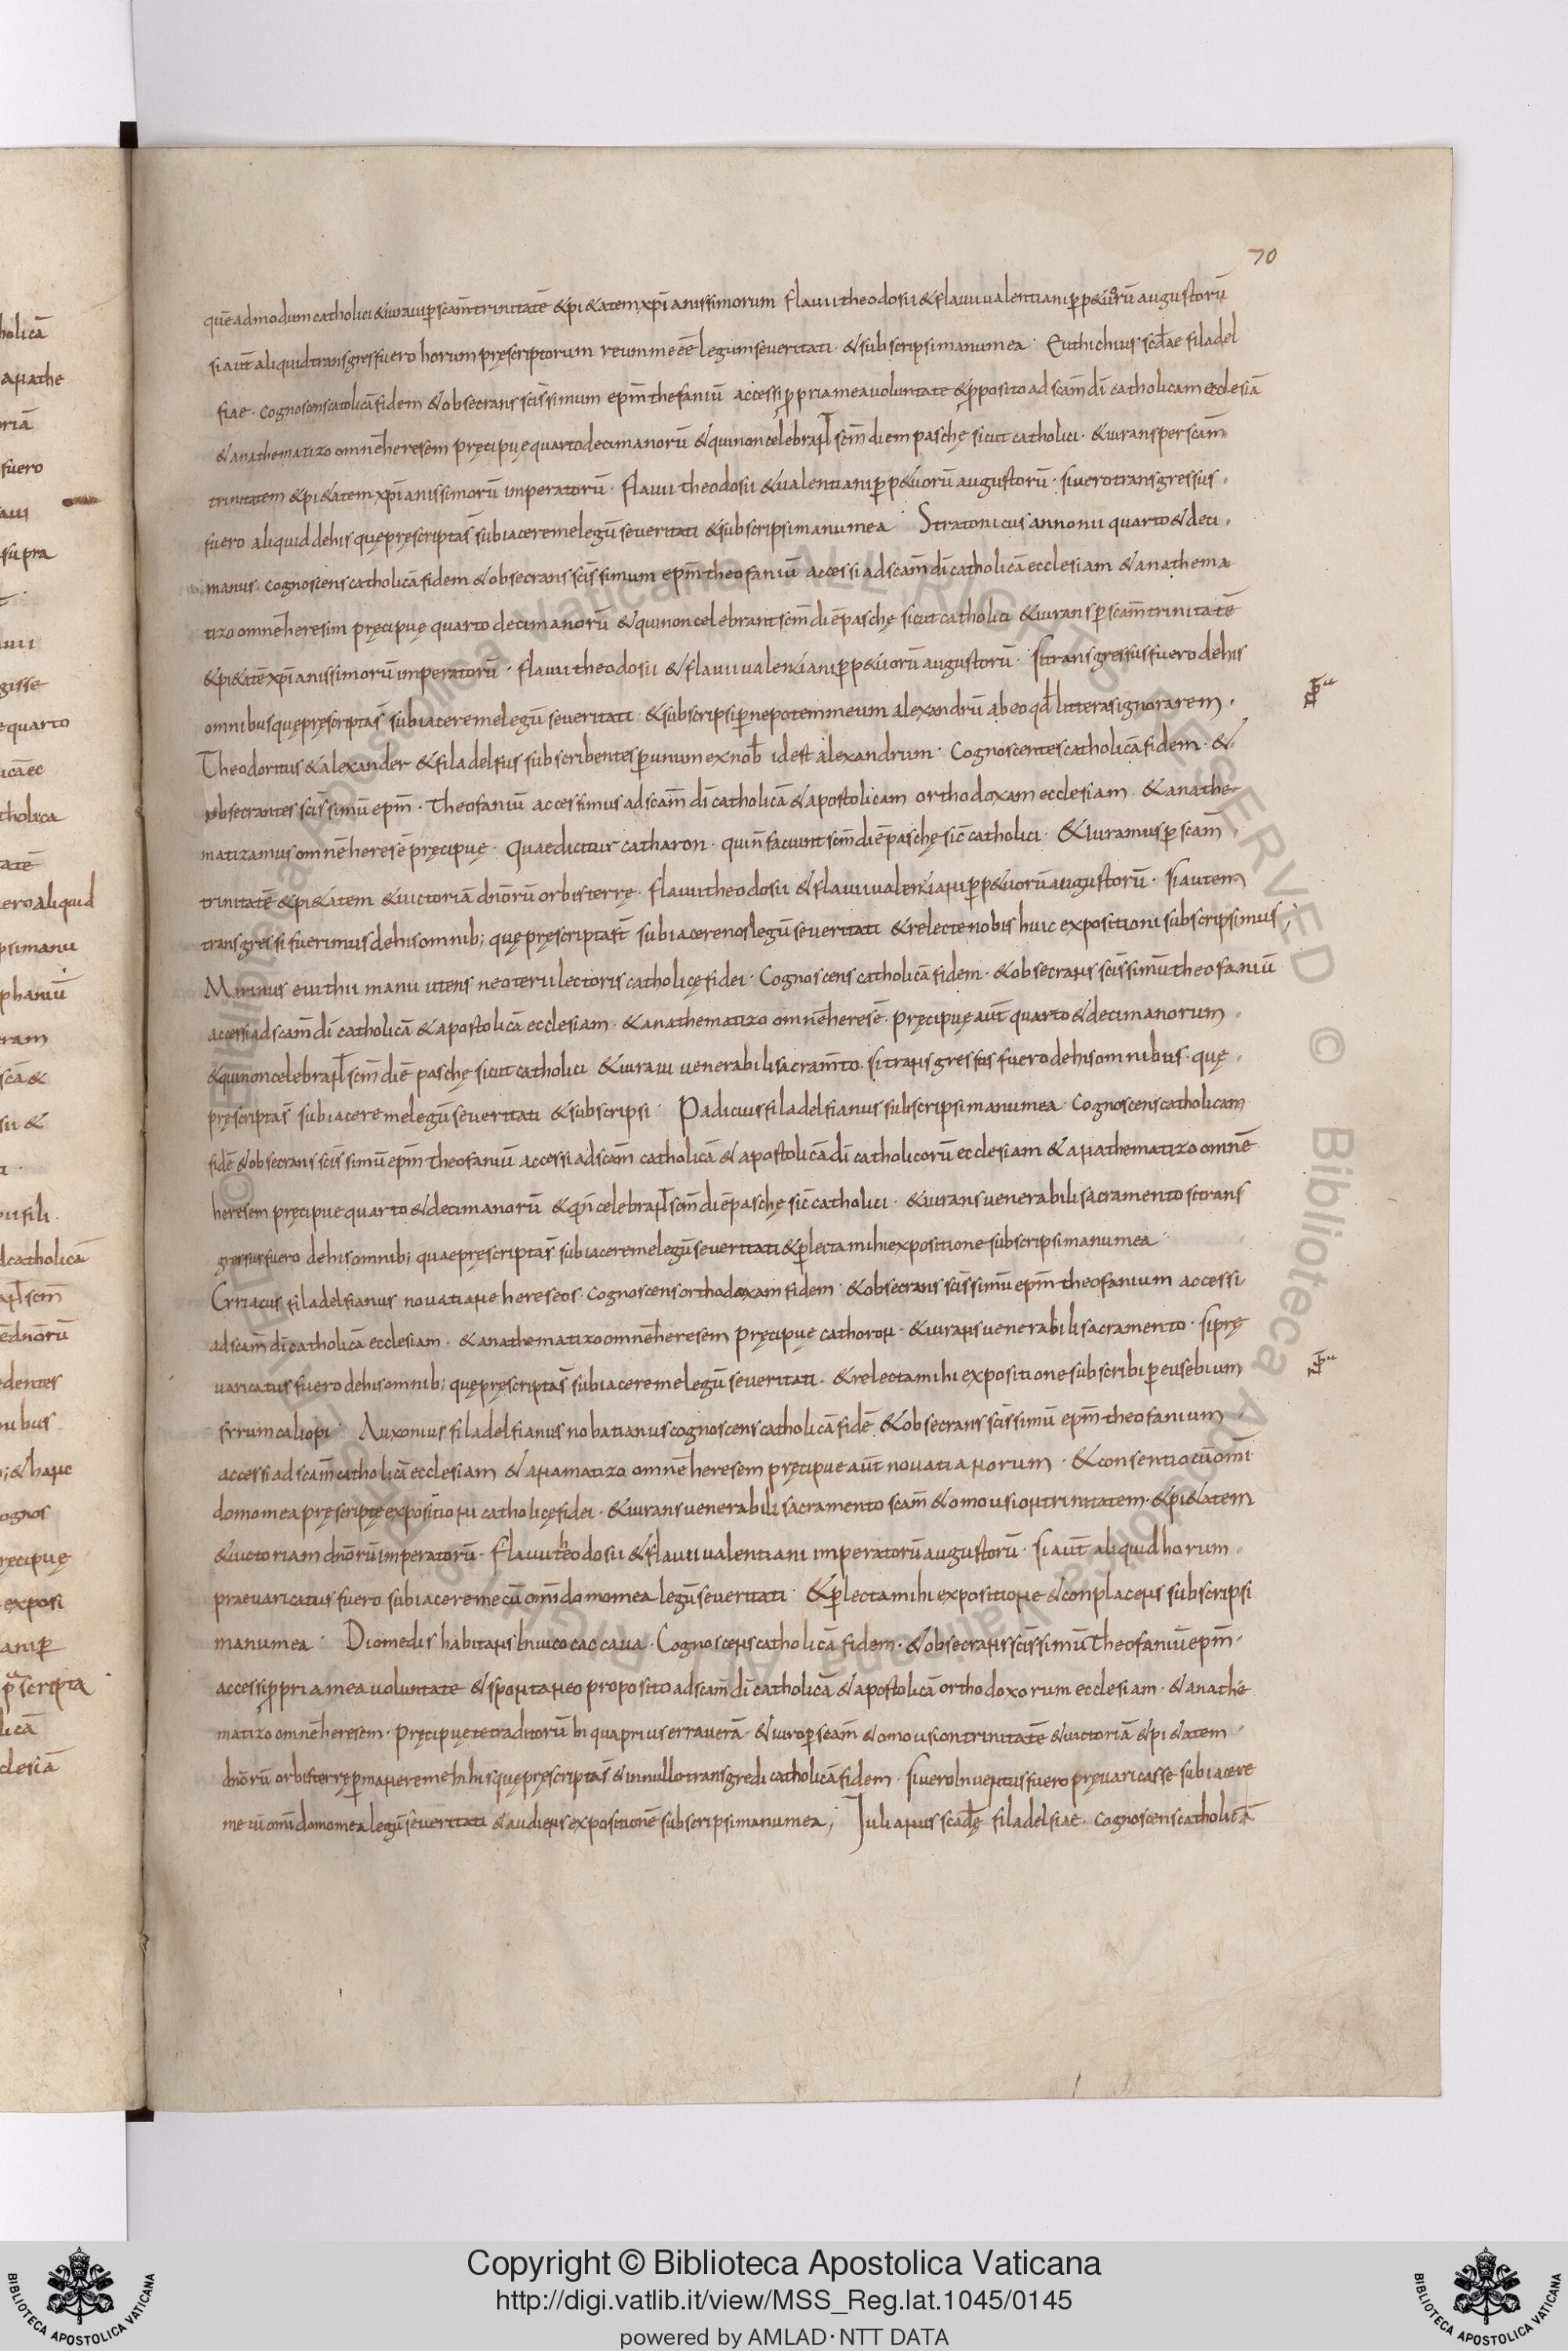 70
quē admodum catholici & iuraui p scam̄ trinitatē & pi&atem xp̄ianissimorum flauii theodosii & flauii ualentiani p p&uorū augustorū
si aut̄ aliquid transgres fuero horum pręscriptorum reum me eē legum seueritati · & subscripsi manu mea · Euthichius scđae filadel
fiae · cognoscens catolicā fidem & obsecrans scīssimum ep̄m thefaniū accessi ppria mea uoluntate & pposito ad scam̄ dī catholicam ecclesiā
& anathematizo omnē heresem pręcipuę quartodecimanorū & qui non celebrant scm̄ diem paschę sicut catholici · & iurans per scam̄
trinitatem & pi&atem xp̄ianissimorū imperatorū · flauii theodosii & ualentiani p p&uorū augustorū · si uero transgressus
fuero aliquid de his quę pręscripta s̄ subiacere me legū seueritati & subscripsi manu mea Stratonicus annonii quarto & deci
manus · cognoscens catholicā fidem & obsecrans scīssimum ep̄m theofaniū accessi ad scam̄ dī catholicā ecclesiam & anathema
tizo omnē heresim pręcipuę quarto decimanorū & qui non celebrant scm̄ diē paschę sicut catholici & iurans p scam̄ trinitatē
& pi&atē xp̄ianissimorū imperatorū · flauii theodosii & flauii ualentiani p p&uorū augustorū · si transgressus fuero de his
omnibus quę pręscripta s̄ subiacere me legū seueritati · & subscripsi p nepotem meum alexandrū ab eo qđ litteras ignorarem
Theodoritus & alexander & filadelfius subscribentes p unum ex nob̄ id est alexandrum · Cognoscentes catholicā fidem · &
obsecrantes scīssimū ep̄m · theofaniū accessimus ad scam̄ dī catholicā & apostolicam orthodoxam ecclesiam & anathe
matizamus omnē heresē pręcipuę · quae dicitur catharon · qui n̄ faciunt scm̄ diē paschę sic̄ catholici · & iuramus p scam̄
trinitatē & pi&atem & uictoriā dn̄orū orbis terrę · flauii theodosii & flauii ualentiani p p&uorū augustorū · si autem
transgressi fuerimus de his omnib; quę pręscripta st̄ subiacere nos legū seueritati & relecte nobis huic expositioni subscripsimus;
Marinus euithii manu utens neoterii lectoris catholicę fidei · Cognoscens catholicā fidem · & obsecrans scīssimū theofaniū
accessi ad scam̄ dī catholicā & apostolicā ecclesiam · & anathematizo omnē heresē · pręcipuę aut̄ quarto & decimanorum
& qui non celebrant scm̄ diē paschę sicut catholici & iuraui uenerabili sacram̄to · si transgressus fuero de his omnibus · quę
pręscripta s̄ subiacere me legū seueritati & subscripsi · Padicius filadelfianus subscripsi manu mea · Cognoscens catholicam
fidē & obsecrans scīssimū ep̄m theofaniū accessi ad scam̄ catholicā & apostolicā dī catholicorū ecclesiam & anathematizo omnē
heresem pręcipue quarto & decimanorū & q n̄ celebrant scm̄ diē paschę sic̄ catholici · & iurans uenerabili sacramento si trans
gressus fuero de his omnib; quae pręscripta s̄ subiacere me legū seueritati & plecta mihi expositione subscripsi manu mea
Cyriacus filadelfianus nouatiane hereseos · Cognoscens orthodoxam fidem · & obsecrans scīssimū ep̄m theofanium accessi
ad scam̄ dī catholicā ecclesiam · & anathematizo omnē heresem pręcipuę cathoron · & iurans uenerabili sacramento · si prę
uaricatus fuero de his omnib; quę pręscripta s̄ subiacere me legū seueritati · & relecta mihi expositione subscribi p eusebium
syrum caliopi · Auxonius filadelfianus nobatianus cognoscens catholicā fidē & obsecrans scīssimū ep̄m theofanium
accessi ad scam̄ catholicā ecclesiam & anamatizo omnē heresem pręcipue aut̄ nouatianorum · & consentio cū om̄i
domo mea pręscriptę expositioni catholicę fidei · & iurans uenerabili sacramento scam̄ & omousion trinitatem · & pi&atem
& uictoriam dn̄orū imperatorū · flauii theodosii & flauii ualentiani imperatorū augustorū · si aut̄ aliquid horum
praeuaricatus fuero subiacere me cū om̄i domo mea legū seueritati · & plecta mihi expositione & conplacens subscripsi
manu mea · Diomedis habitans In uico caccaua · Cognoscens catholicā fidem · & obsecrans scīssimū theofaniū ep̄m
accessi ppria mea uoluntate & spontaneo proposito ad scam̄ dī catholicā & apostolicā orthodoxorum ecclesiam · & anathe
matizo omnē heresem · pręcipuę tetraditorū In qua prius erraueram̄ & iuro p scam̄ & omousion trinitatē & uictoriā & pi&atem
dn̄orū orbis terrę pmanere me In his quę pręscripta s̄ & in nullo transgredi catholicā fidem · si uero Inuentus fuero pręuaricasse subiacere
me cū om̄i domo mea legū seueritati & audiens expositionē subscripsi manu mea; Iulianus scađę filadelfiae · cognoscens catholicā
Copyright © Biblioteca Apostolica Vaticana
http://digi.vatlib.it/view/MSS_Reg.lat.1045/0145
powered by AMLAD·NTT DATA